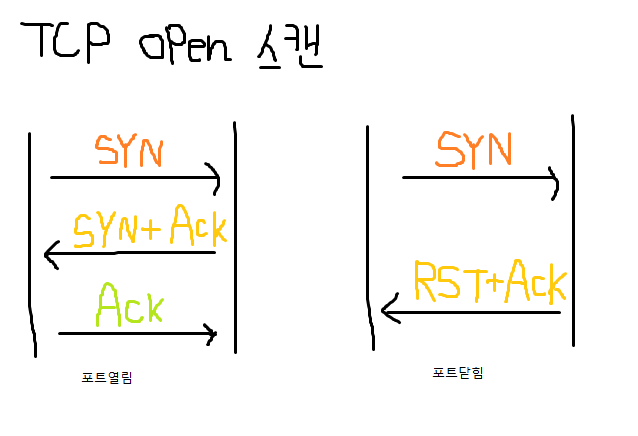 TCP open 스캔
SYN
SYN+Ack
Ack
포트열림
SYN
RST+Ack
포트닫힘